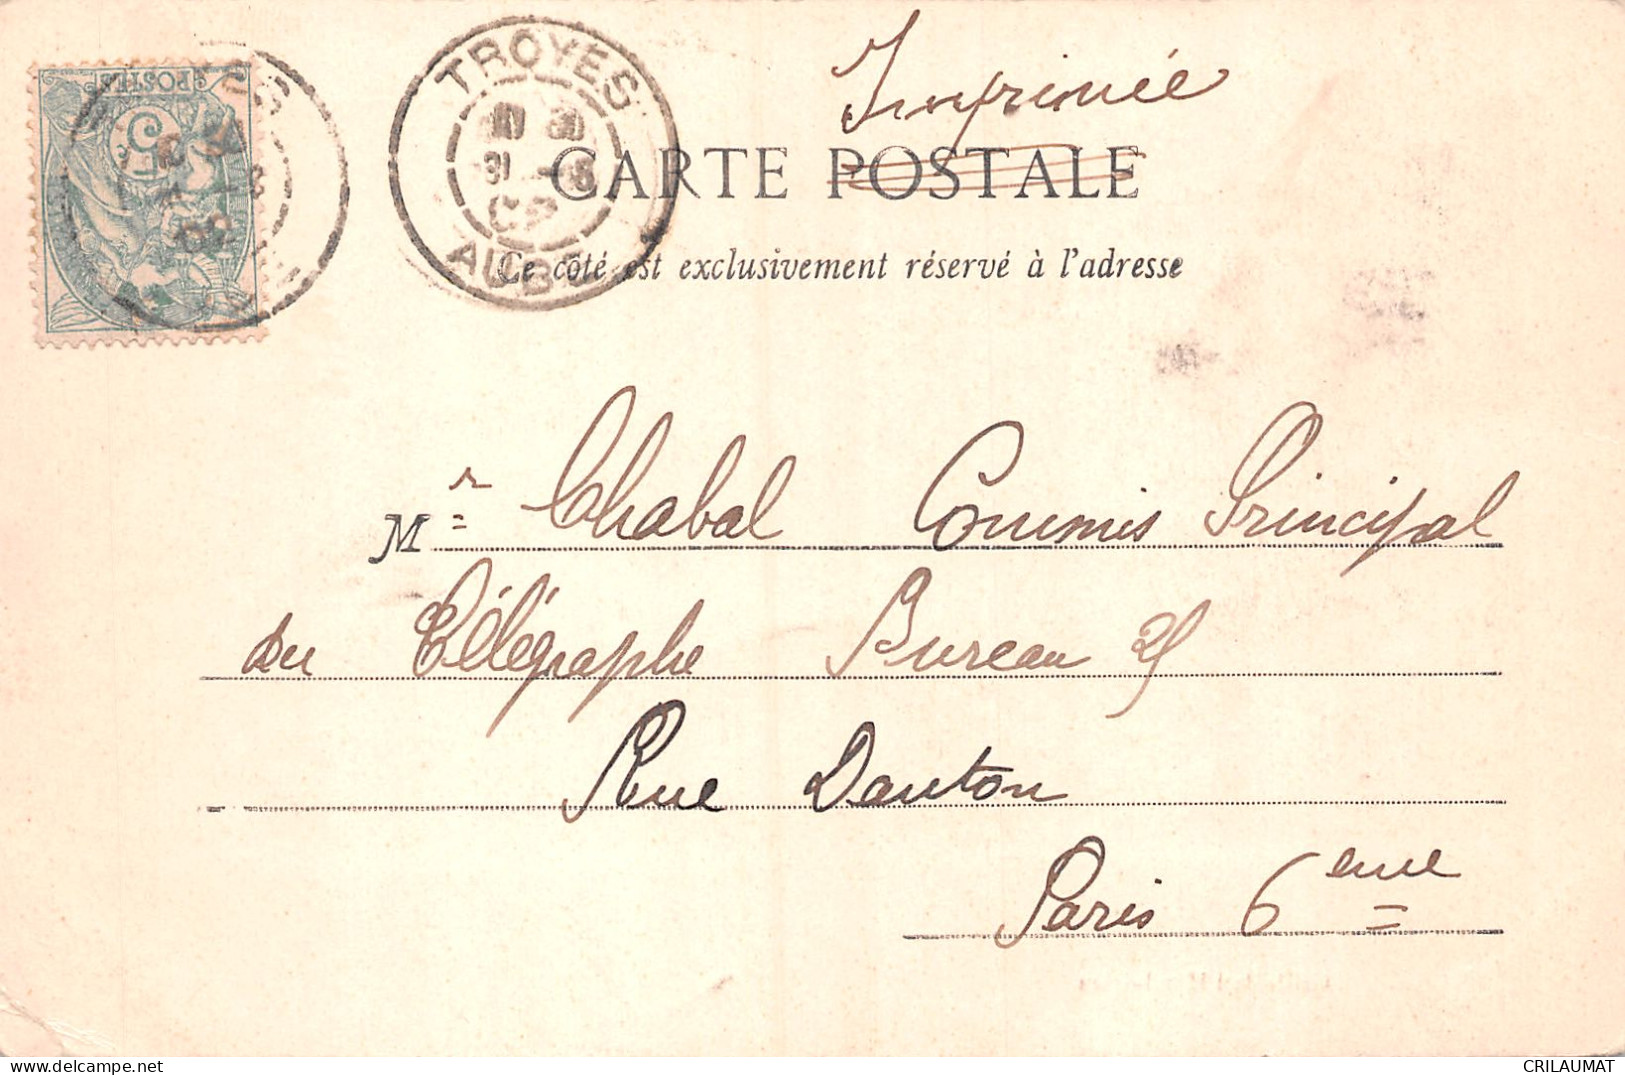 POSTES
5
TROYES
31
02
AUBE
Imprimée
CARTE POSTALE
Ce côté est exclusivement réservé à l'adresse
Mr Chabal Commis Principal
du Télégraphe Bureau 25
Rue Danton
Paris 6eme
CRILAUMAT